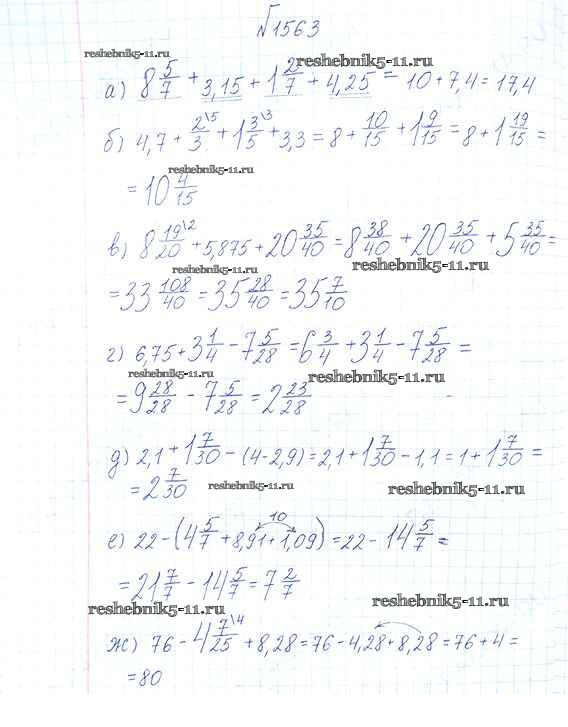 №1563
reshebnik5-11.ru reshebnik5-11.ru
а) 8 5/7 + 3,15 + 1 2/7 + 4,25 = 10 + 7,4 = 17,4
б) 4,7 + 2/3\5 + 1 3/5\3 + 3,3 = 8 + 10/15 + 1 9/15 = 8 + 1 19/15 =
reshebnik5-11.ru
= 10 4/15
в) 8 19/20\2 + 5,875 + 20 35/40 = 8 38/40 + 20 35/40 + 5 35/40 =
reshebnik5-11.ru reshebnik5-11.ru
= 33 108/40 = 35 28/40 = 35 7/10
г) 6,75 + 3 1/4 - 7 5/28 = 6 3/4 + 3 1/4 - 7 5/28 =
reshebnik5-11.ru reshebnik5-11.ru
= 9 28/28 - 7 5/28 = 2 23/28
д) 2,1 + 1 7/30 - (4 - 2,9) = 2,1 + 1 7/30 - 1,1 = 1 + 1 7/30 =
= 2 7/30
reshebnik5-11.ru reshebnik5-11.ru
10
е) 22 - (4 5/7 + 8,91 + 1,09) = 22 - 14 5/7 =
= 21 7/7 - 14 5/7 = 7 2/7
reshebnik5-11.ru reshebnik5-11.ru
ж) 76 - 4 7/25\4 + 8,28 = 76 - 4,28 + 8,28 = 76 + 4 =
= 80